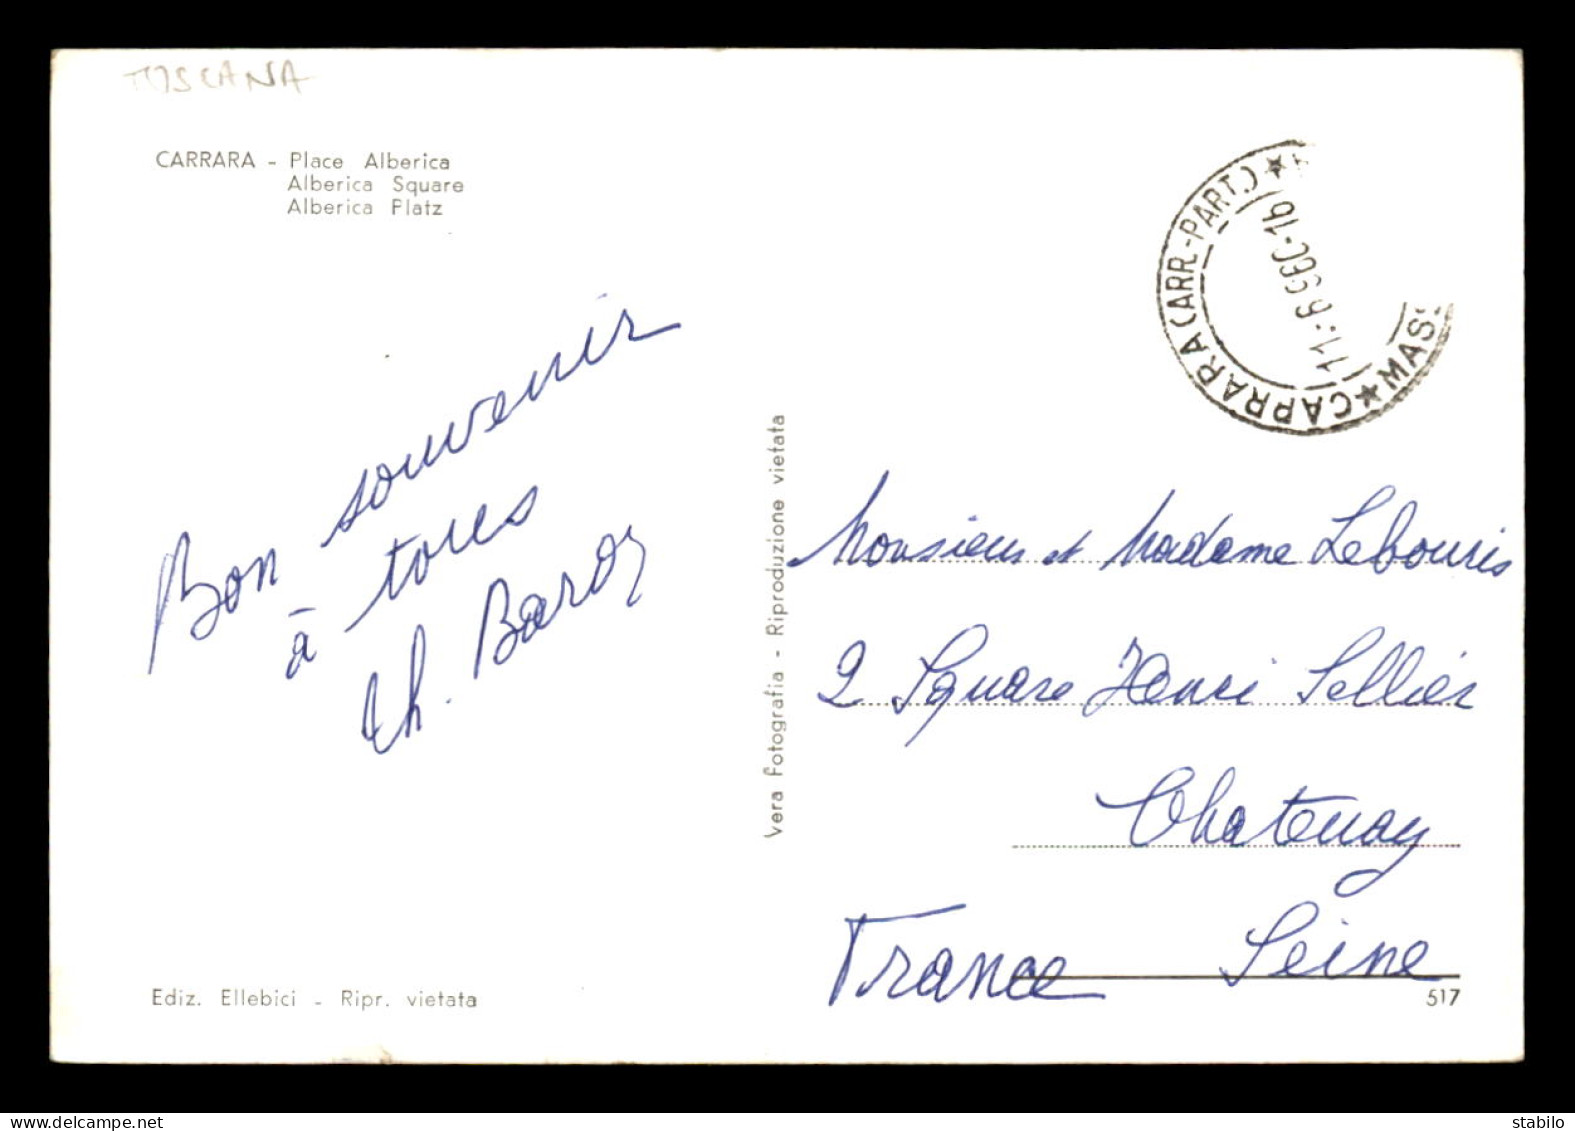 TOSCANA
CARRARA - Place Alberica
Alberica Square
Alberica Platz
Bon souvenir
à tous
Ch. Baroy
Ediz. Ellebici - Ripr. vietata
Vera Fotografia - Riproduzione vietata
CARRARA (ARR.-PART.) ★
★ MASS
Monsieur et Madame Lebouris
2 Square Henri Sellier
Chatenay
Seine
France
517
delcampe.net
stabilo